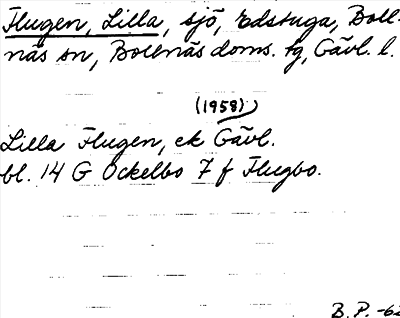 Flugen, Lilla, sjö, Edstuga, Boll-
näs sn, Bollnäs doms. tg, Gävl. l.
(1958)
Lilla Flugen, ek Gävl.
bl. 14 G Ockelbo 7 f Flugbo.
B. P. -62